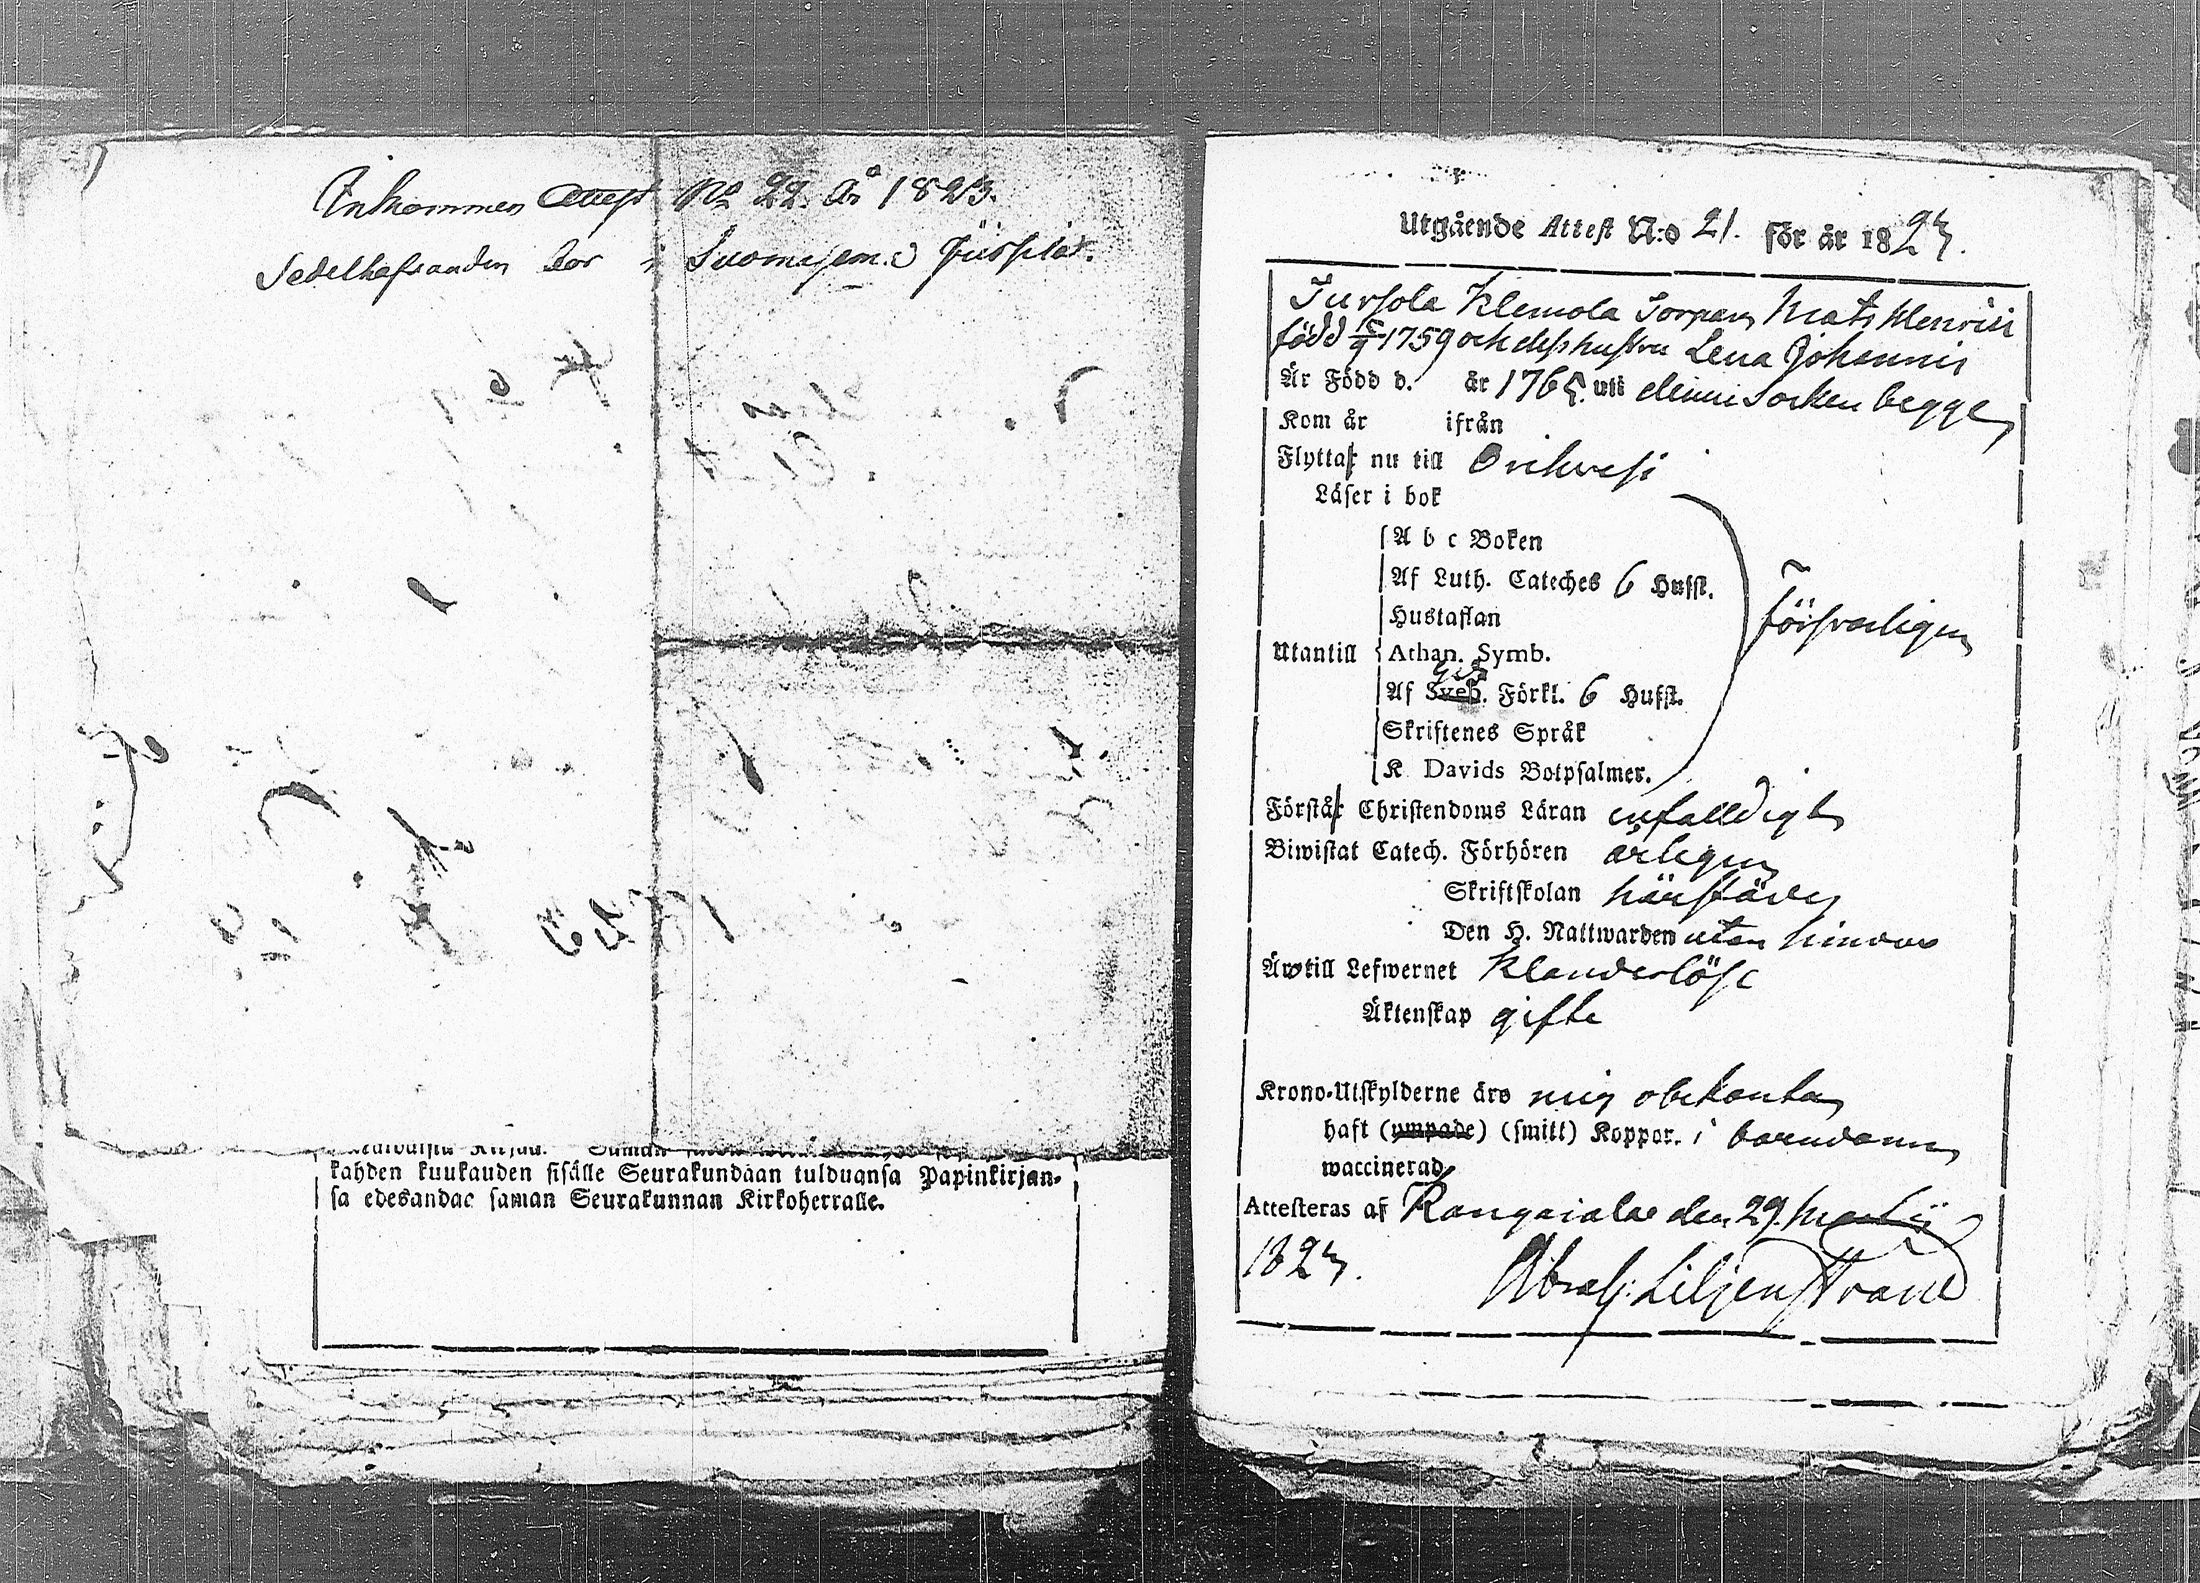 Inkommen Attest No 22. År 1823.
Sedelhafvanden bor i
kahden kuukauden sisälle Seurakundaan tulduansa Papinkirjan-
sa edesandac saman Seurakunnan Kirkoherralle.
Utgående Attest N:o 21. för år 1823.
Tursola Klemola Torpare Mats Henrici
född 1759 och dess hustru Lena Johannis
Är Född d. år 1765. uti denne Socken begge
Kom år ifrån
Flyttar nu till Orihvesi
Läser i bok
A b c Boken
Af Luth. Cateches 6 Hufst.
Hustaflan
Utantill Athan. Symb.
Af Sveb. Förkl. 6 Hufst.
Skriftenes Språk
K Davids Botpsalmer.
försvarligen
Förstår Christendoms Läran enfalldigt
Biwistat Catech. Förhören årligen
Skriftskolan härstädes
Den H. Nattwarden utan hinder
Äro till Lefwernet Klanderlöse
Äktenskap gifte
Krono-Utskylderne äro mig obekanta
haft (ympade) (smitt) Koppor. i barndomen
waccinerad
Attesteras af Kangasala den 29. Martii
1823. Abrah: Liljenstrand